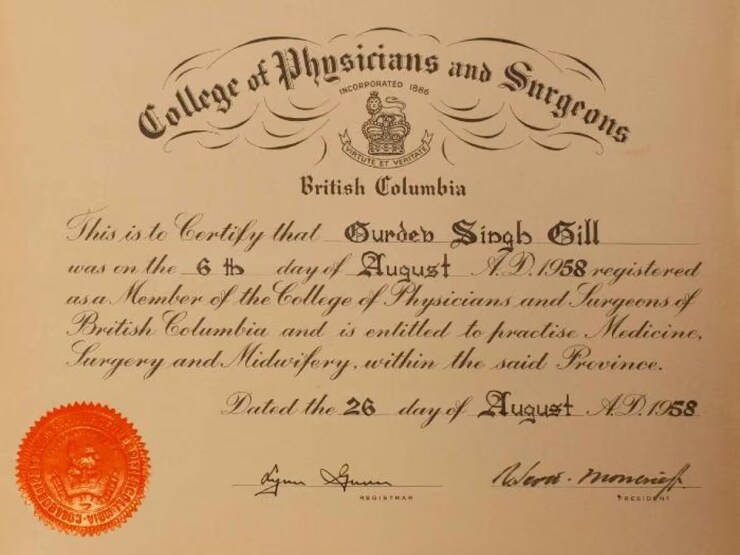 College of Physicians and Surgeons
INCORPORATED 1886
VIRTUTE ET VERITATE
British Columbia
This is to Certify that Gurdev Singh Gill
was on the 6 th day of August A.D. 1958 registered
as a Member of the College of Physicians and Surgeons of
British Columbia and is entitled to practise Medicine,
Surgery and Midwifery, within the said Province.
Dated the 26 day of August A.D. 1958
Lynn Gunn
REGISTRAR
PRESIDENT